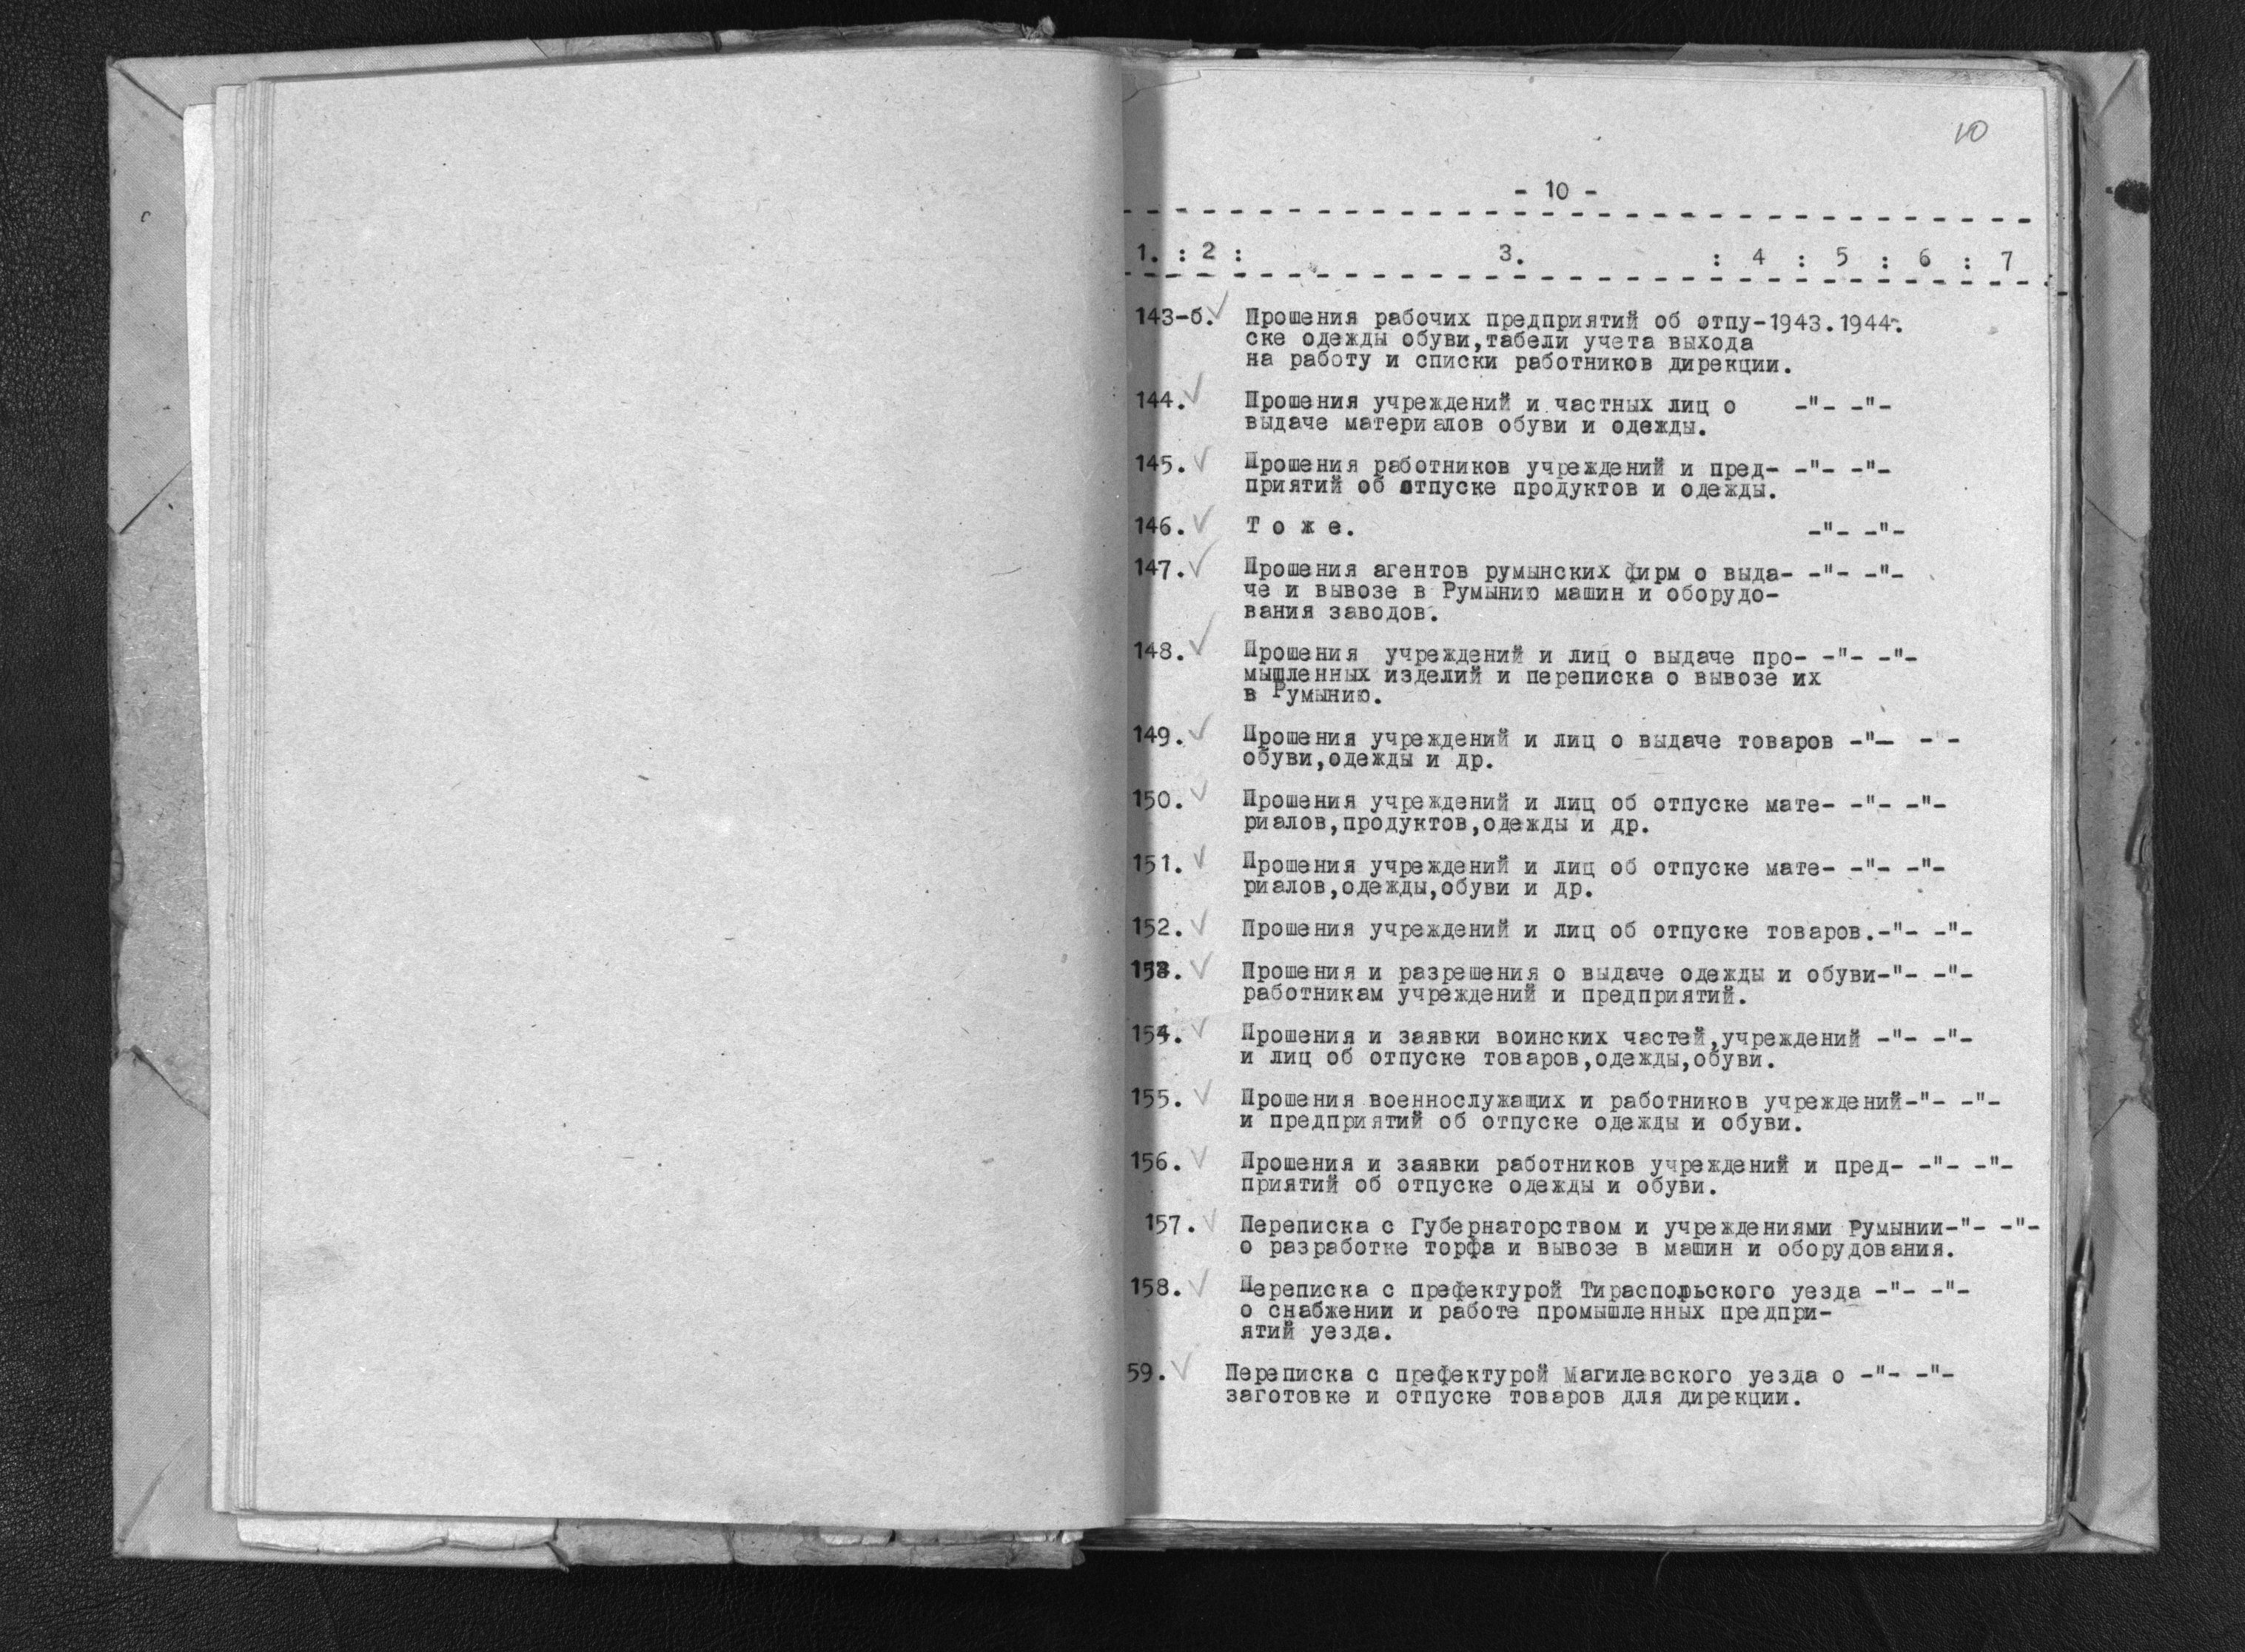 10
- 10 -
1. : 2 : 3. : 4 : 5 : 6 : 7
143-б. Прошения рабочих предприятий об отпу-1943.1944.
ске одежды обуви,табели учета выхода
на работу и списки работников дирекции.
144. Прошения учреждений и частных лиц о -"- -"-
выдаче материалов обуви и одежды.
145. Прошения работников учреждений и пред- -"- -"-
приятий об отпуске продуктов и одежды.
146. Т о ж е. -"- -"-
147. Прошения агентов румынских фирм о выда- -"- -"-
че и вывозе в Румынию машин и оборудо-
вания заводов.
148. Прошения учреждений и лиц о выдаче про- -"- -"-
мышленных изделий и переписка о вывозе их
в Румынию.
149. Прошения учреждений и лиц о выдаче товаров -"- -"-
обуви,одежды и др.
150. Прошения учреждений и лиц об отпуске мате- -"- -"-
риалов,продуктов,одежды и др.
151. Прошения учреждений и лиц об отпуске мате- -"- -"-
риалов,одежды,обуви и др.
152. Прошения учреждений и лиц об отпуске товаров.-"- -"-
153. Прошения и разрешения о выдаче одежды и обуви-"- -"-
работникам учреждений и предприятий.
154. Прошения и заявки воинских частей,учреждений -"- -"-
и лиц об отпуске товаров,одежды,обуви.
155. Прошения военнослужащих и работников учреждений-"- -"-
и предприятий об отпуске одежды и обуви.
156. Прошения и заявки работников учреждений и пред- -"- -"-
приятий об отпуске одежды и обуви.
157. Переписка с Губернаторством и учреждениями Румынии-"- -"-
о разработке торфа и вывозе в машин и оборудования.
158. Переписка с префектурой Тираспольского уезда -"- -"-
о снабжении и работе промышленных предпри-
ятий уезда.
59. Переписка с префектурой Магилевского уезда о -"- -"-
заготовке и отпуске товаров для дирекции.